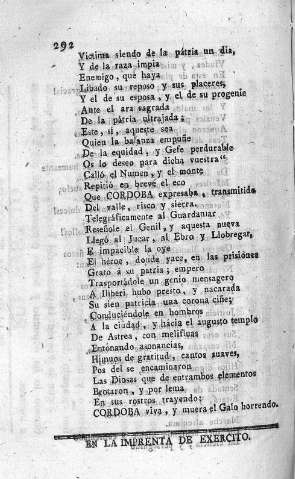 292
Victima siendo de la pátria un dia,
Y de la raza impia
Enemigo, que haya
Libado su reposo y sus placeres,
Y el de su esposa, y el de su progenie
Ante el ara sagrada
De la pátria ultrajada:
Este, si, aqueste sea
Quien la balanza empuñe
De la equidad, y Gefe perdurable
Os lo deseo para dicha vuestra"
Calló el Numen, y el monte
Repitió en breve el eco
Que CORDOBA expresaba, transmitido
Del valle, risco y sierra,
Telegráficamente al Guardamar
Reseñole el Genil, y aquesta nueva
Llegó al Jucar, al Ebro y Llobregar,
E impacible la oye
El héroe, donde yace, en las prisiones
Grato á su patria; empero
Trasportándole un genio mensagero
A Iliberi hubo presto, y nacarada
Su sien patricia una corona ciñe;
Conduciéndole en hombros
A la ciudad, y hácia el augusto templo
De Astrea, con melifluas
Entonando asonancias,
Himnos de gratitud, cantos suaves,
Pos del se encaminaron
Las Diosas que de entrambos elementos
Brotaron, y por lema
En sus rostros trayendo:
CORDOBA viva, y muera el Galo horrendo.
EN LA IMPRENTA DE EXERCITO.